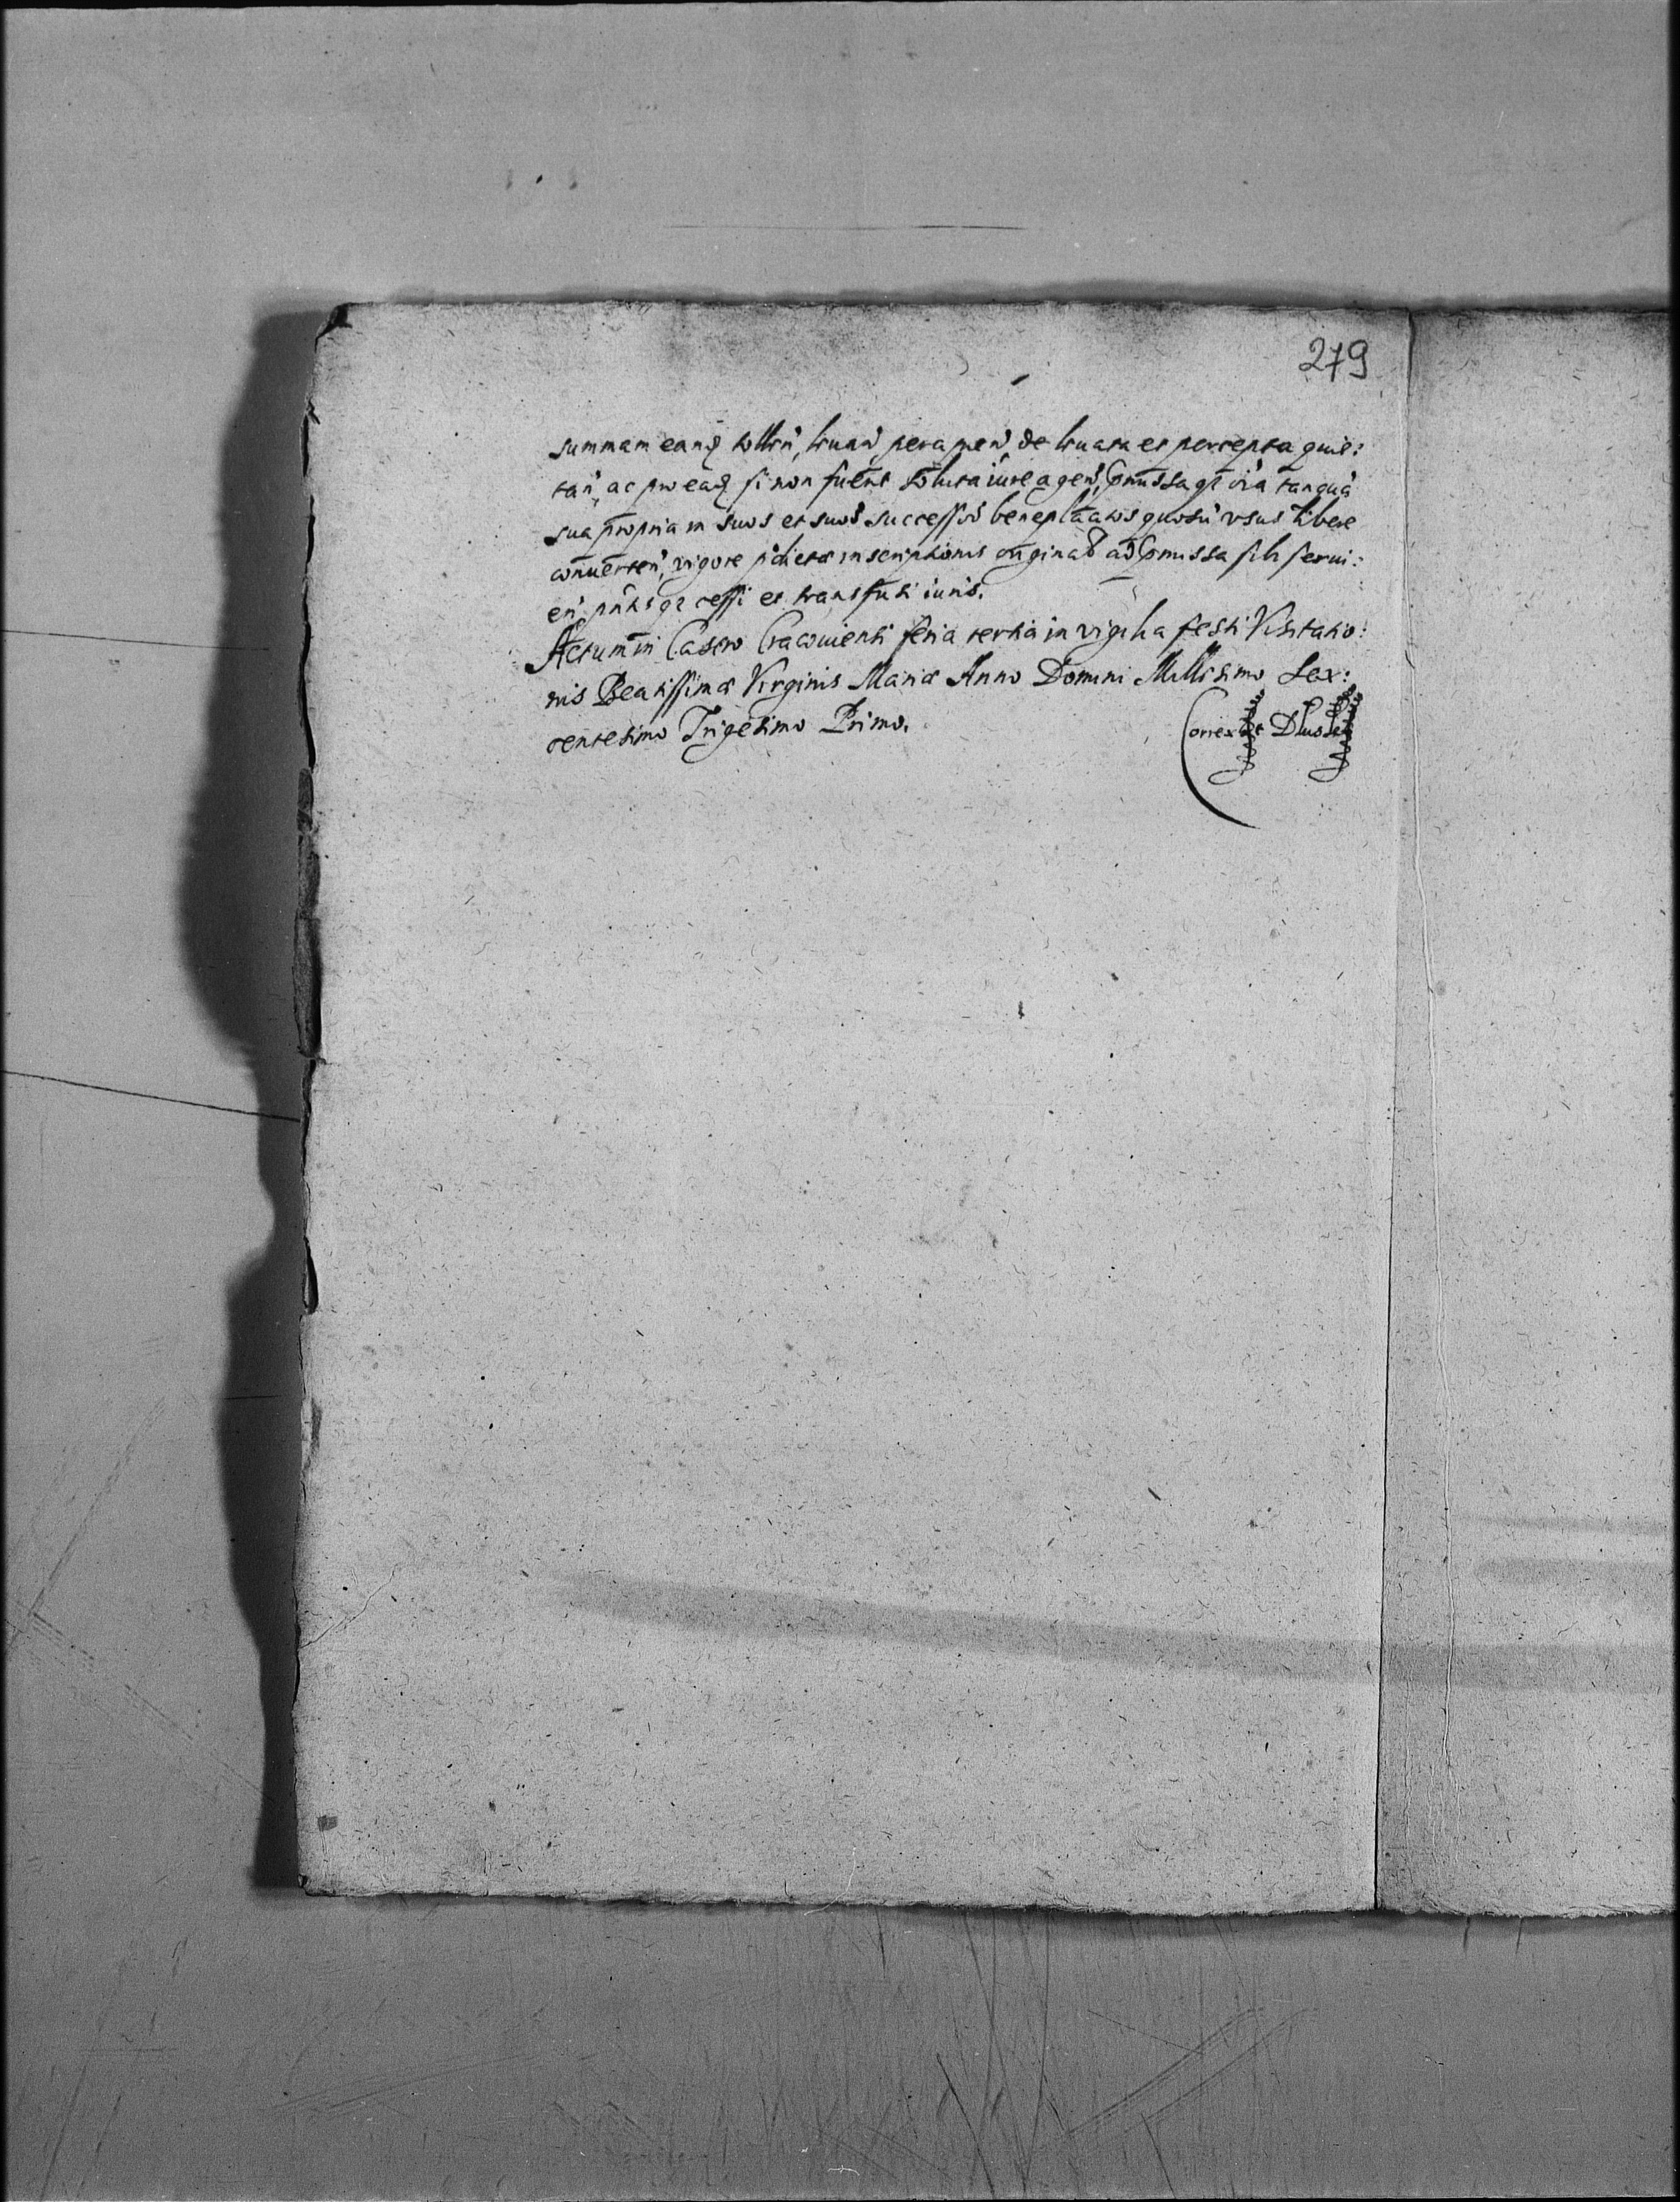 279
summam eandꝫ tollen̄, leuan̄, percipien̄, de leuata et percepta quie:
tan̄, ac pro eadꝫ si non fuerit soluta iure agen̄, p̄missaqꝫ o͞ia tanquā
sua propria in suos et suor̄ successor̄ beneplacitos quosuis vsus libere
conuerten̄, vigore p̄dictæ inscriptionis original̄ ad p̄missa sibi serui:
en̄, p̄ntisqꝫ cessi et transfusi iuris.
Actum in Castro Cracouiensi feria tertia in vigilia festi Visitatio:
nis Beatissimæ Virginis Mariæ Anno Domini Millesimo Sex:
centesimo Trigesimo Primo.
Correxit